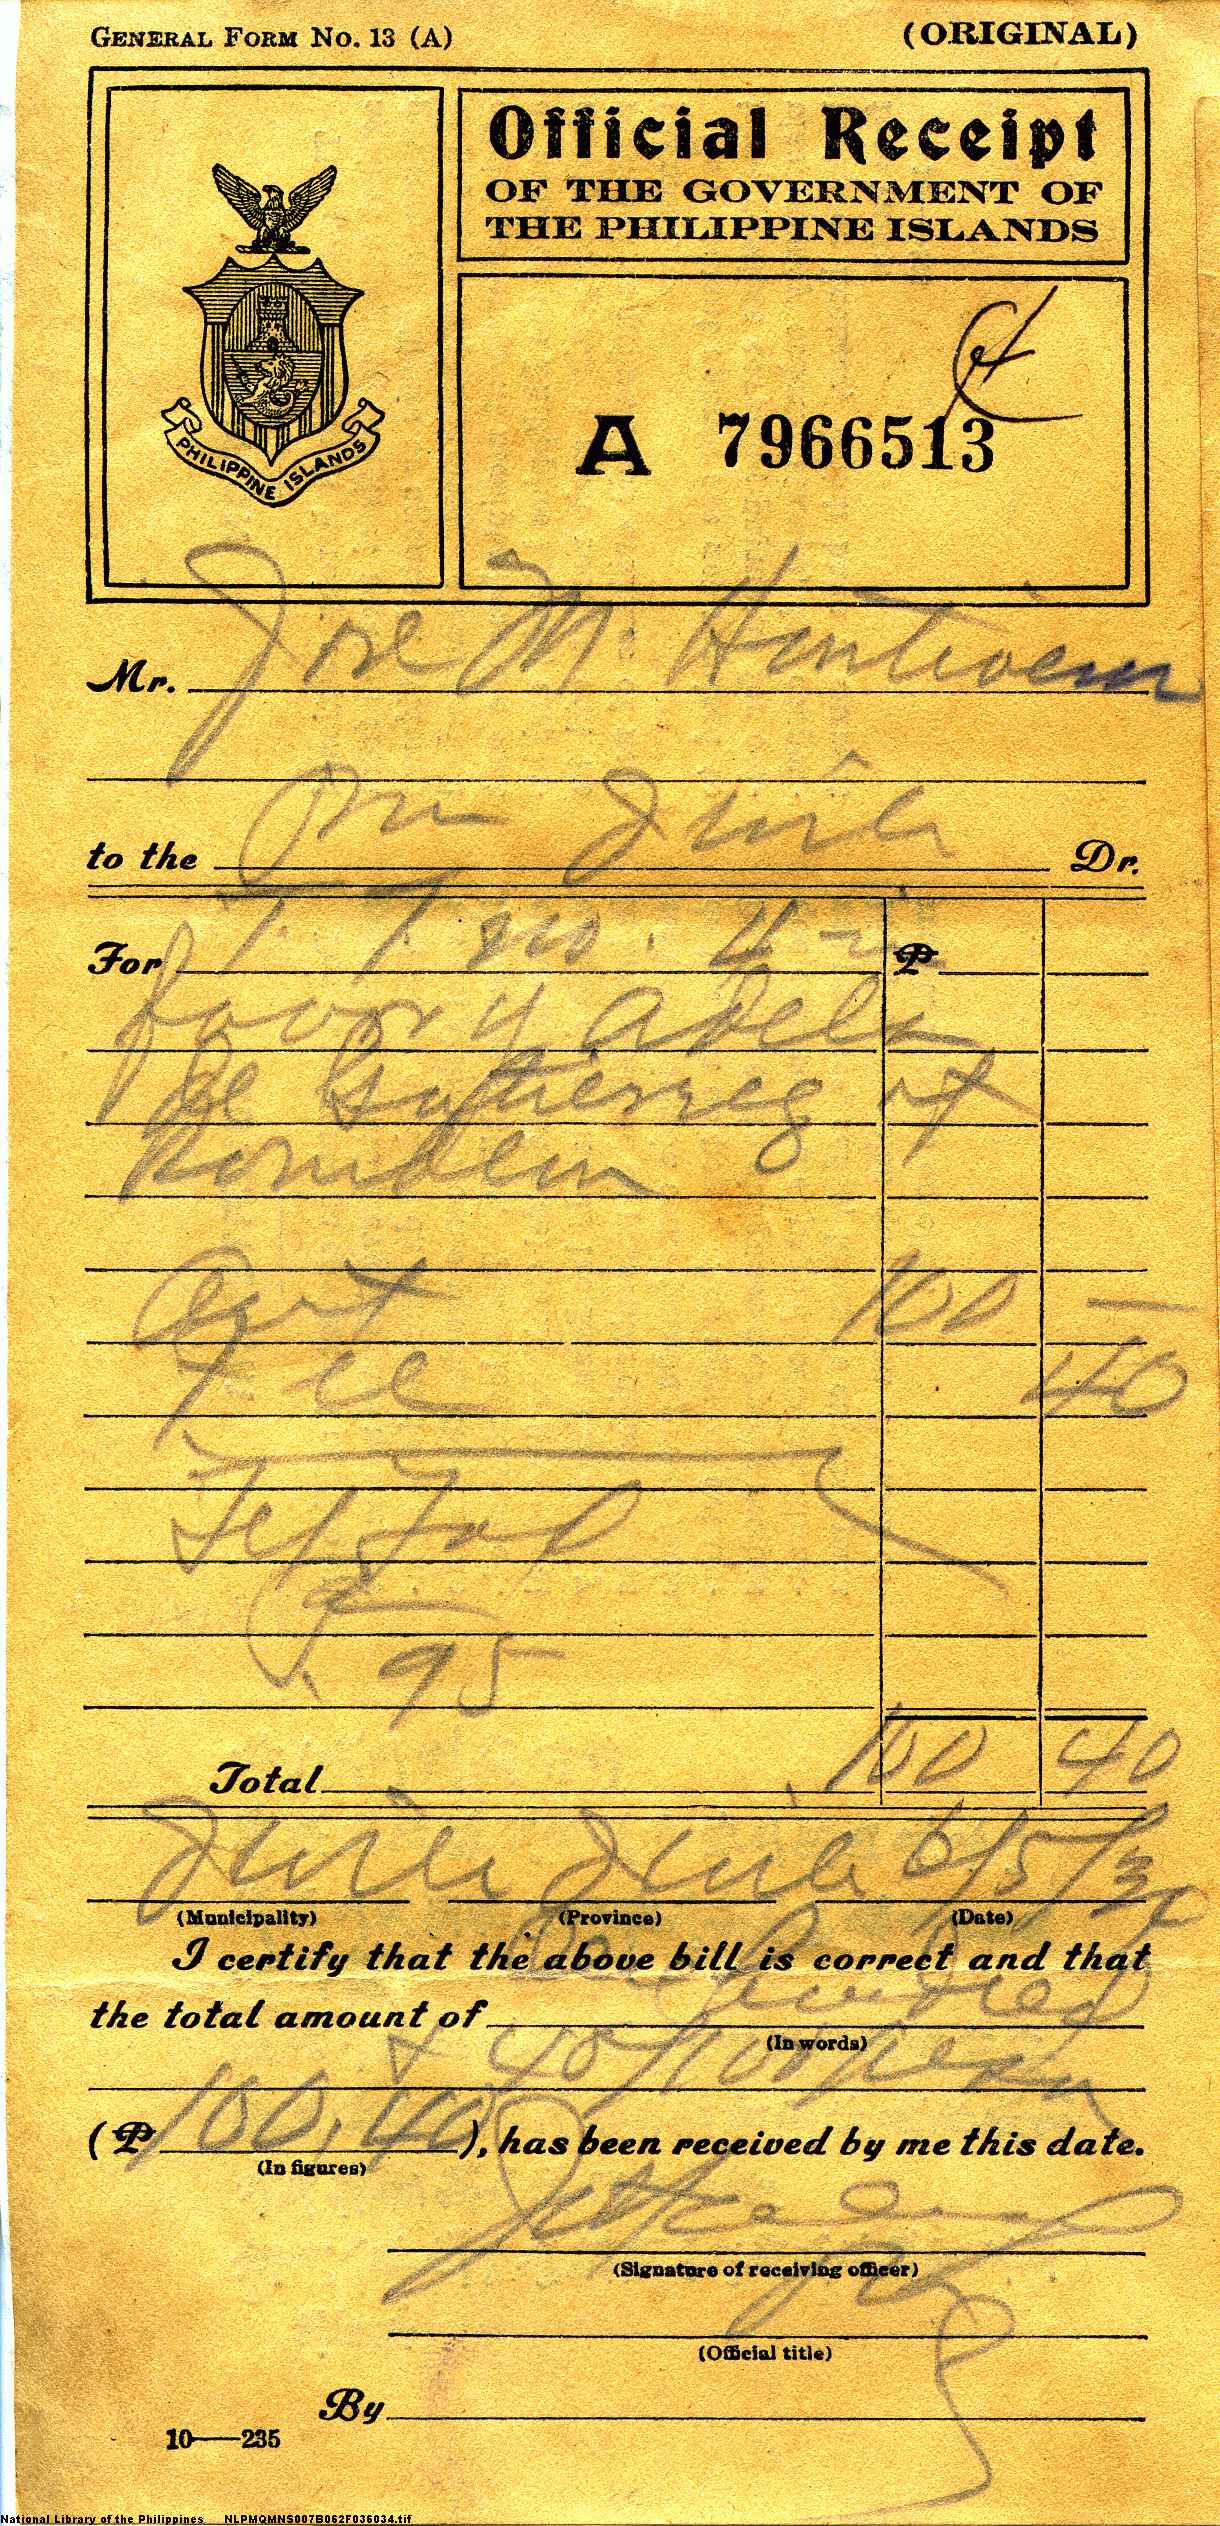 GENERAL FORM NO. 13 (A)
(ORIGINAL)
Official Receipt
OF THE GOVERNMENT OF
THE PHILIPPINE ISLANDS
PHILIPPINE ISLANDS
A 7966513
Mr. Jose M.
to the Dr.
For T. T. no. ₱
favor of Adela
de Gutierrez at
Romblon
Amt 100 —
Fee 40
95
Total 100 40
6/5/30
(Municipality) (Province) (Date)
I certify that the above bill is correct and that
One Hundred
the total amount of
(In words)
& 40/100 pesos
(₱ 100.40), has been received by me this date.
(In figures)
(Signature of receiving officer)
(Official title)
By
10—235
National Library of the Philippines NLPMQMNS007B062F036034.tif